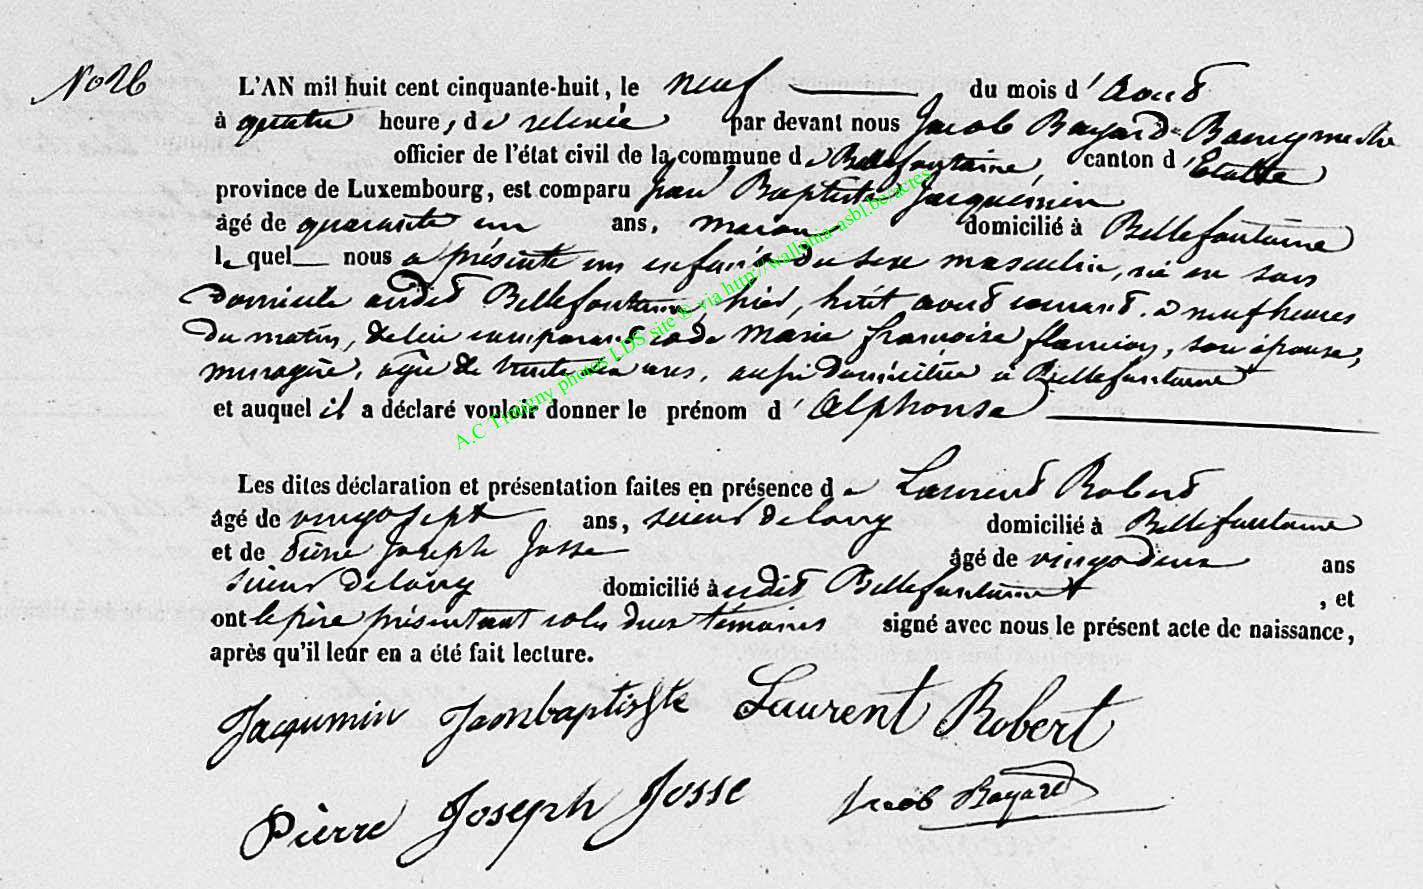 No 26
L'AN mil huit cent cinquante-huit, le neuf du mois d'Aout
à quatre heure, de relevée par devant nous Jacob Bayard Bourgmestre
officier de l'état civil de la commune de Bellefontaine, canton d'Etalle
province de Luxembourg, est comparu Jean Baptiste Jacquemin
âgé de quarante un ans, maçon domicilié à Bellefontaine
lequel nous a présenté un enfant du sexe masculin, né en son
domicile audit Bellefontaine, hier, huit aout courant, à neuf heures
du matin, de lui comparant et de Marie françoise flamion, son épouse,
menagère, agée de trente ans, aussi domiciliée à Bellefontaine
et auquel il a déclaré vouloir donner le prénom d'Alphonse
Les dites déclaration et présentation faites en présence de Laurent Robert
âgé de vingt sept ans, scieur de long domicilié à Bellefontaine
et de Pierre Joseph Josse âgé de vingt deux ans
scieur de long domicilié à audit Bellefontaine, et
ont le père présentant et les deux témoins signé avec nous le présent acte de naissance,
après qu'il leur en a été fait lecture.
Jacqumin Jeanbaptiste Laurent Robert
Pierre Joseph Josse Jacob Bayard
A.C Tintigny photos LDS site © via http://wallonia-asbl.be/actes